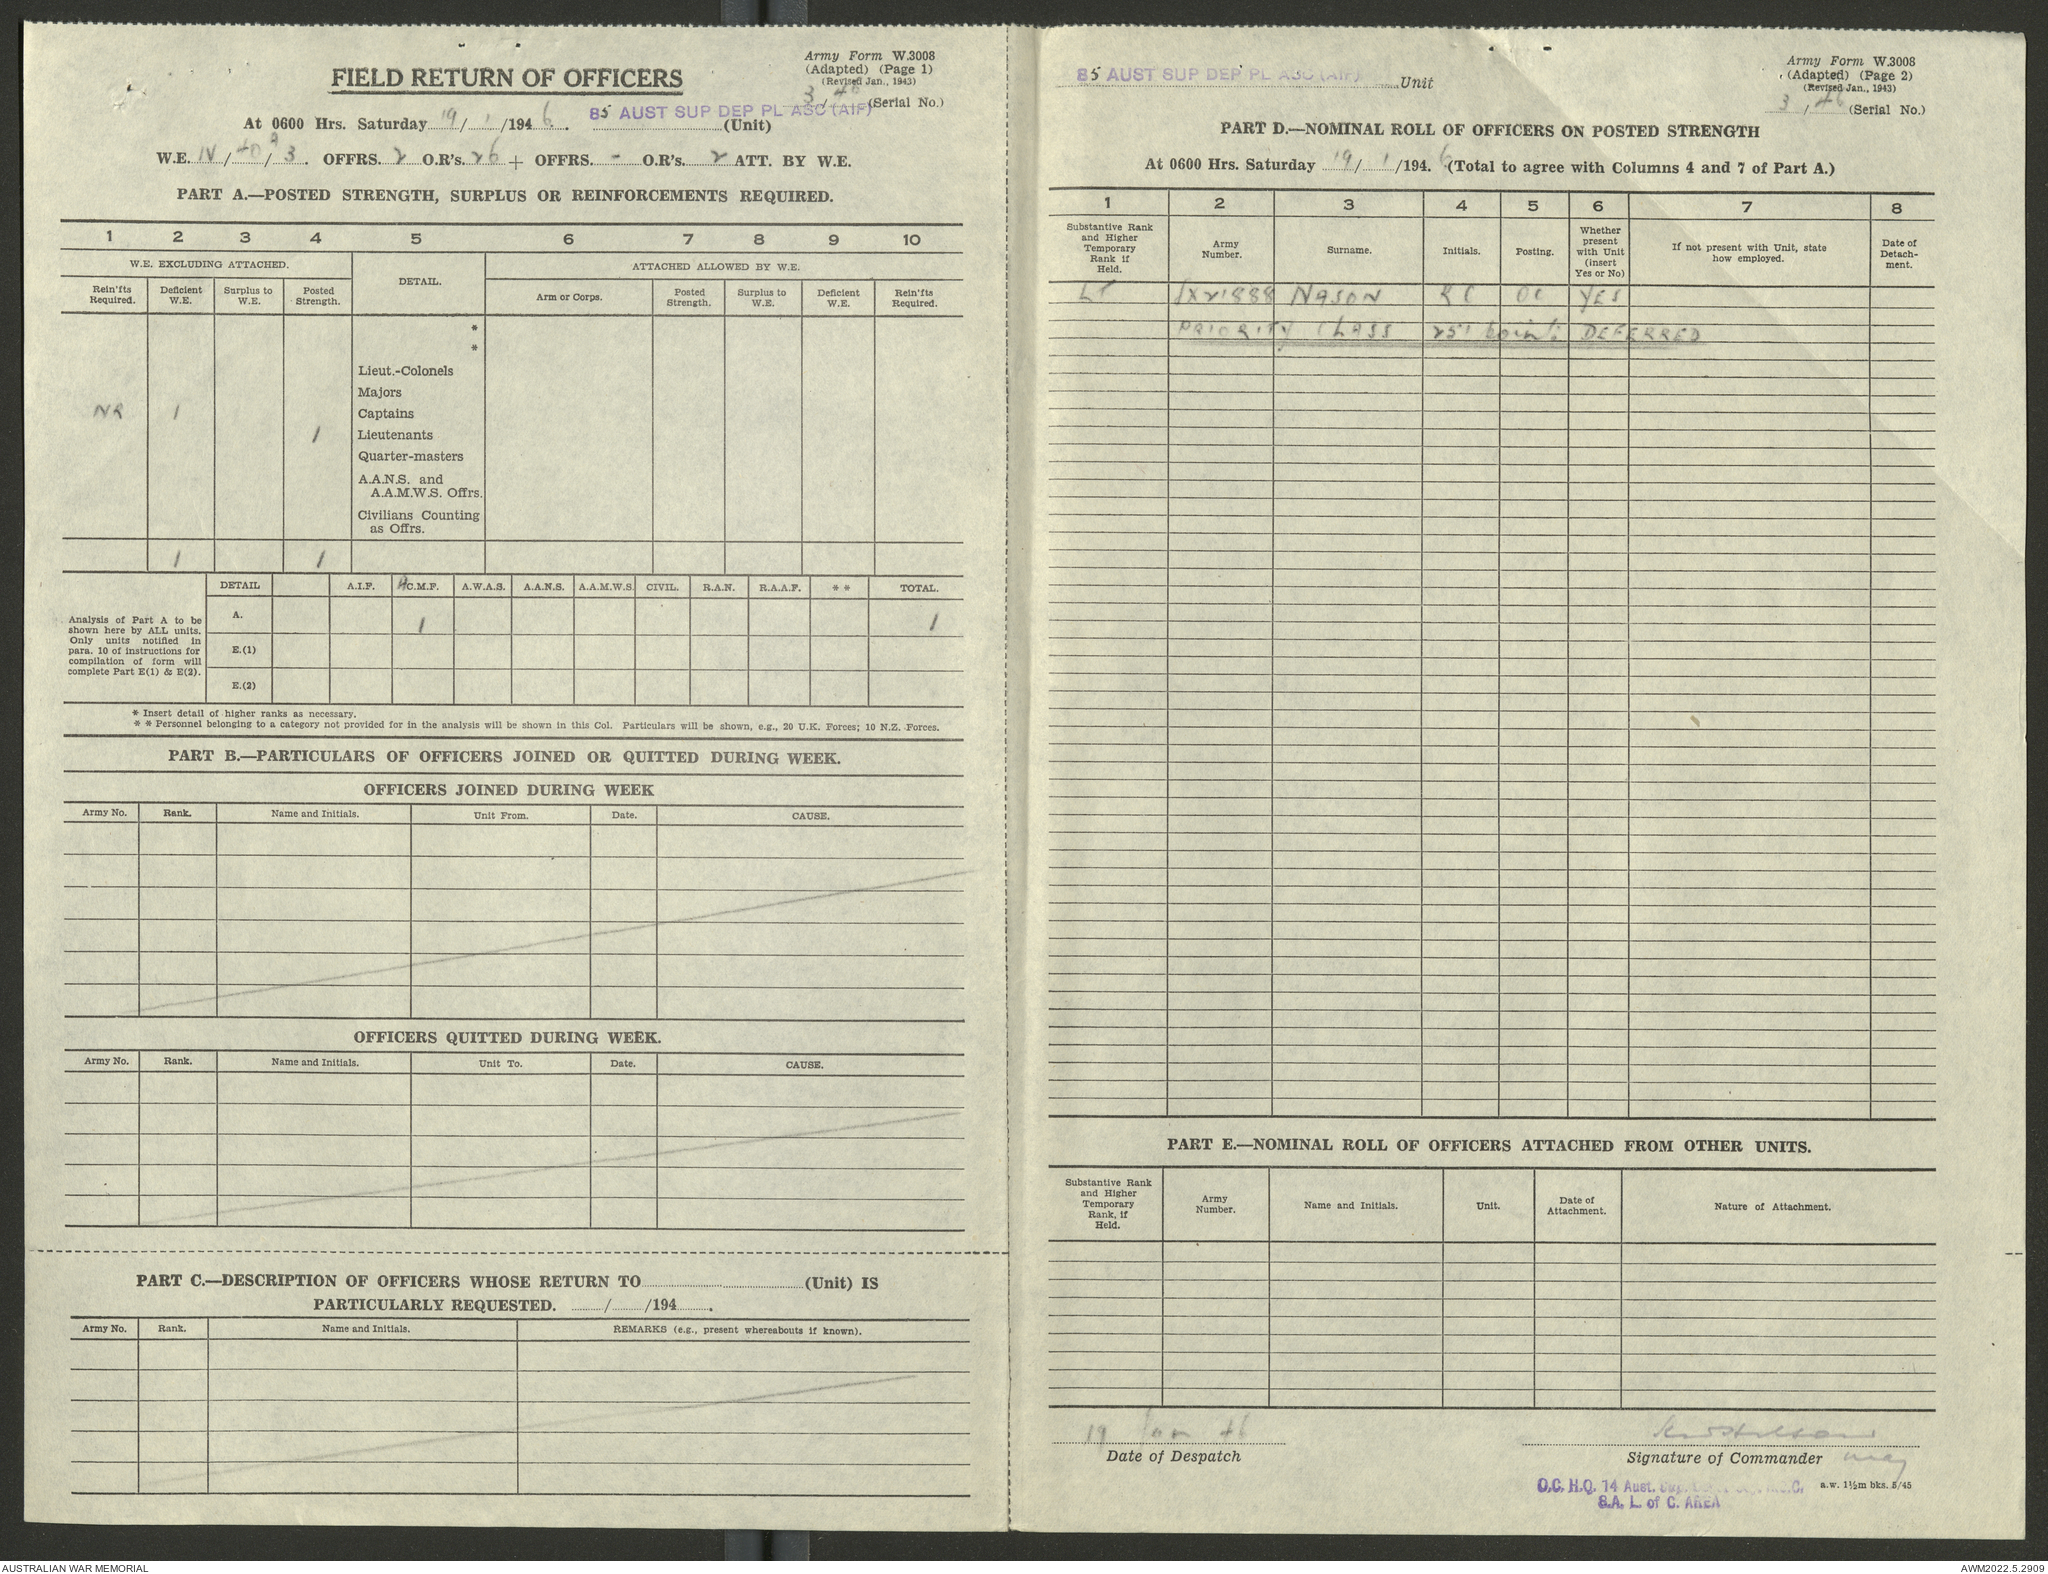 Army Form W.3008
(Adapted) (Page 1)
(Revised Jan., 1943)
3/46 (Serial No.)
FIELD RETURN OF OFFICERS
At 0600 Hrs. Saturday 19/1/1946. 85 AUST SUP DEP PL ASC (AIF) (Unit)
W.E. IV/40A/3. OFFRS. 2 O.R's. 26 + OFFRS. - O.R's. 2 ATT. BY W.E.
PART A.—POSTED STRENGTH, SURPLUS OR REINFORCEMENTS REQUIRED.
1 2 3 4 5 6 7 8 9 10
W.E. EXCLUDING ATTACHED. DETAIL. ATTACHED ALLOWED BY W.E.
Rein'fts Required. Deficient W.E. Surplus to W.E. Posted Strength. Arm or Corps. Posted Strength. Surplus to W.E. Deficient W.E. Rein'fts Required.
*
*
Lieut.-Colonels
Majors
NR 1 Captains
1 Lieutenants
Quarter-masters
A.A.N.S. and
A.A.M.W.S. Offrs.
Civilians Counting
as Offrs.
1 1
DETAIL A.I.F. A C.M.F. A.W.A.S. A.A.N.S. A.A.M.W.S. CIVIL. R.A.N. R.A.A.F. * * TOTAL.
Analysis of Part A to be
shown here by ALL units.
Only units notified in
para. 10 of instructions for
compilation of form will
complete Part E(1) & E(2).
A. 1 1
E.(1)
E.(2)
* Insert detail of higher ranks as necessary.
* * Personnel belonging to a category not provided for in the analysis will be shown in this Col. Particulars will be shown, e.g., 20 U.K. Forces; 10 N.Z. Forces.
PART B.—PARTICULARS OF OFFICERS JOINED OR QUITTED DURING WEEK.
OFFICERS JOINED DURING WEEK
Army No. Rank. Name and Initials. Unit From. Date. CAUSE.
OFFICERS QUITTED DURING WEEK.
Army No. Rank. Name and Initials. Unit To. Date. CAUSE.
PART C.—DESCRIPTION OF OFFICERS WHOSE RETURN TO (Unit) IS
PARTICULARLY REQUESTED. / /194 .
Army No. Rank. Name and Initials. REMARKS (e.g., present whereabouts if known).
Army Form W.3008
(Adapted) (Page 2)
(Revised Jan., 1943)
3/46 (Serial No.)
85 AUST SUP DEP PL ASC (AIF) Unit
PART D.—NOMINAL ROLL OF OFFICERS ON POSTED STRENGTH
At 0600 Hrs. Saturday 19/1/194.6 (Total to agree with Columns 4 and 7 of Part A.)
1 2 3 4 5 6 7 8
Substantive Rank and Higher Temporary Rank if Held. Army Number. Surname. Initials. Posting. Whether present with Unit (insert Yes or No) If not present with Unit, state how employed. Date of Detach-ment.
LT SX21888 NASON RC OC YES
PRIORITY CLASS 251 points DEFERRED
PART E.—NOMINAL ROLL OF OFFICERS ATTACHED FROM OTHER UNITS.
Substantive Rank and Higher Temporary Rank, if Held. Army Number. Name and Initials. Unit. Date of Attachment. Nature of Attachment.
19 Jan 46
Date of Despatch
Signature of Commander Maj
O.C. H.Q. 14 Aust. Sup.
S.A. L. of C. AREA
a.w. 1½m bks. 5/45
AUSTRALIAN WAR MEMORIAL
AWM2022.5.2909